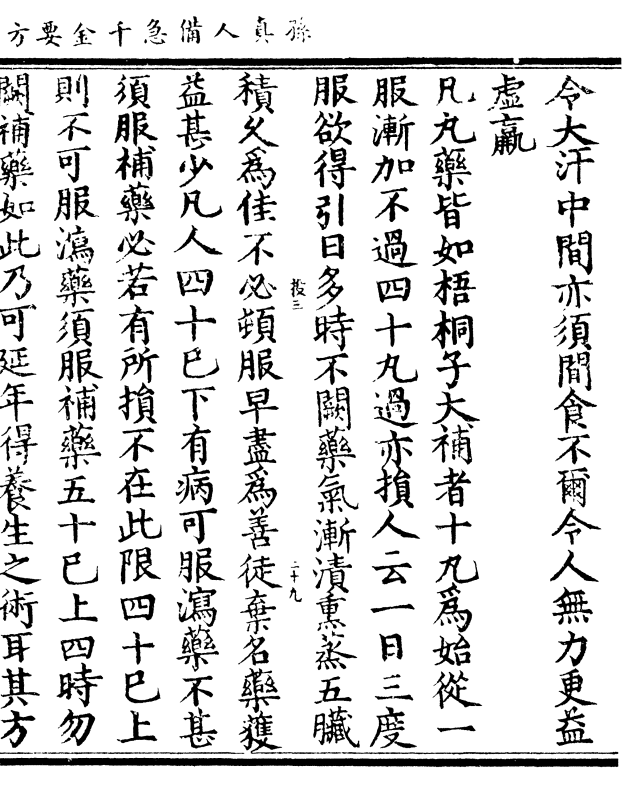 孫真人備急千金要方
令大汗中間亦須間食不爾令人無力更益
虛羸
凡丸藥皆如梧桐子大補者十丸爲始從一
服漸加不過四十丸過亦損人云一日三度
服欲得引日多時不闕藥氣漸漬熏蒸五臟
積久爲佳不必頓服早盡爲善徒棄名藥獲
益甚少凡人四十巳下有病可服瀉藥不甚
須服補藥必若有所損不在此限四十巳上
則不可服瀉藥須服補藥五十巳上四時勿
闕補藥如此乃可延年得養生之術耳其方